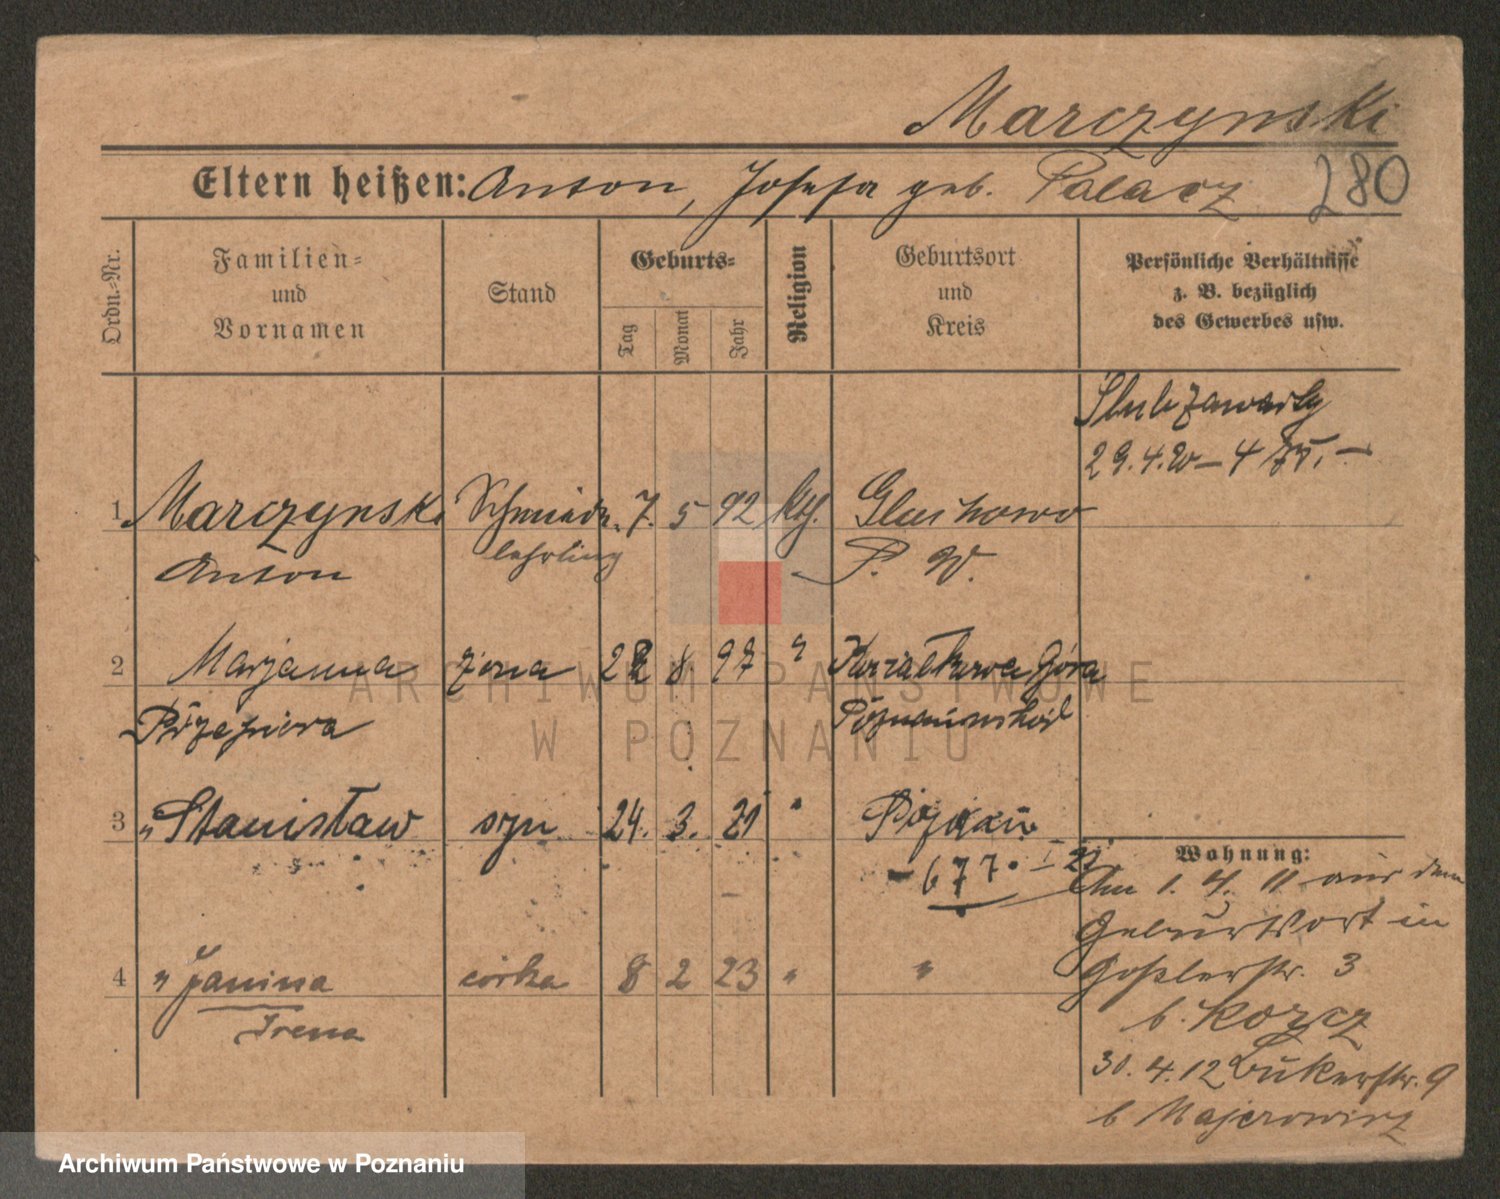 Marczynski
Eltern heißen: Anton, Josefa geb. Palacz
280
Ordn.-Nr.
Familien-
und
Vornamen
Stand
Geburts-
Tag
Monat
Jahr
Religion
Geburtsort
und
Kreis
Persönliche Verhältnisse
z. B. bezüglich
des Gewerbes usw.
Ślub zawarty
29.4.20 – 4
1 Marczynski Schmiede 7. 5 92 kth. Gluchowo
Anton lehrling P. W.
2 Marjanna żona 8 97 " Góra
3 " Stanisław syn 24. 3. 21 " Poznań
– 677.
Wohnung:
Am 1. 4. 11 aus dem
Geburtsort in
Goßlerstr. 3
b. Korcz
30. 4. 12 Bukerstr. 9
b Majerowicz
4 " Janina córka 8 2 23 " "
Irena
ARCHIWUM PAŃSTWOWE
W POZNANIU
Archiwum Państwowe w Poznaniu